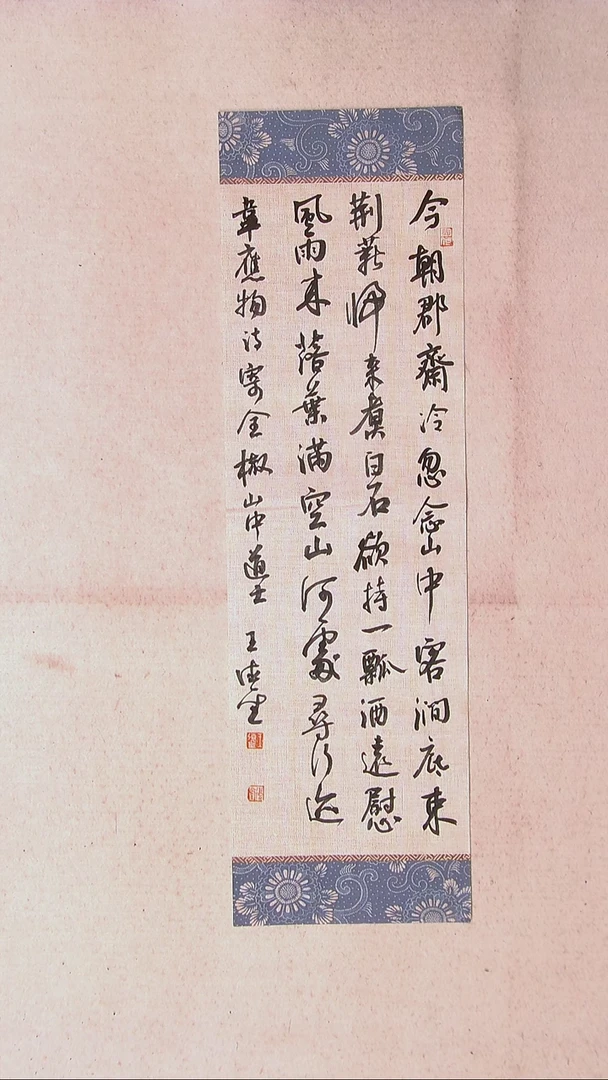 今朝郡齋冷忽念山中客澗底束
荆薪歸来煮白石欲持一瓢酒遠慰
風雨来落葉滿空山河處尋行迹
韋應物诗寄全椒山中道士 王